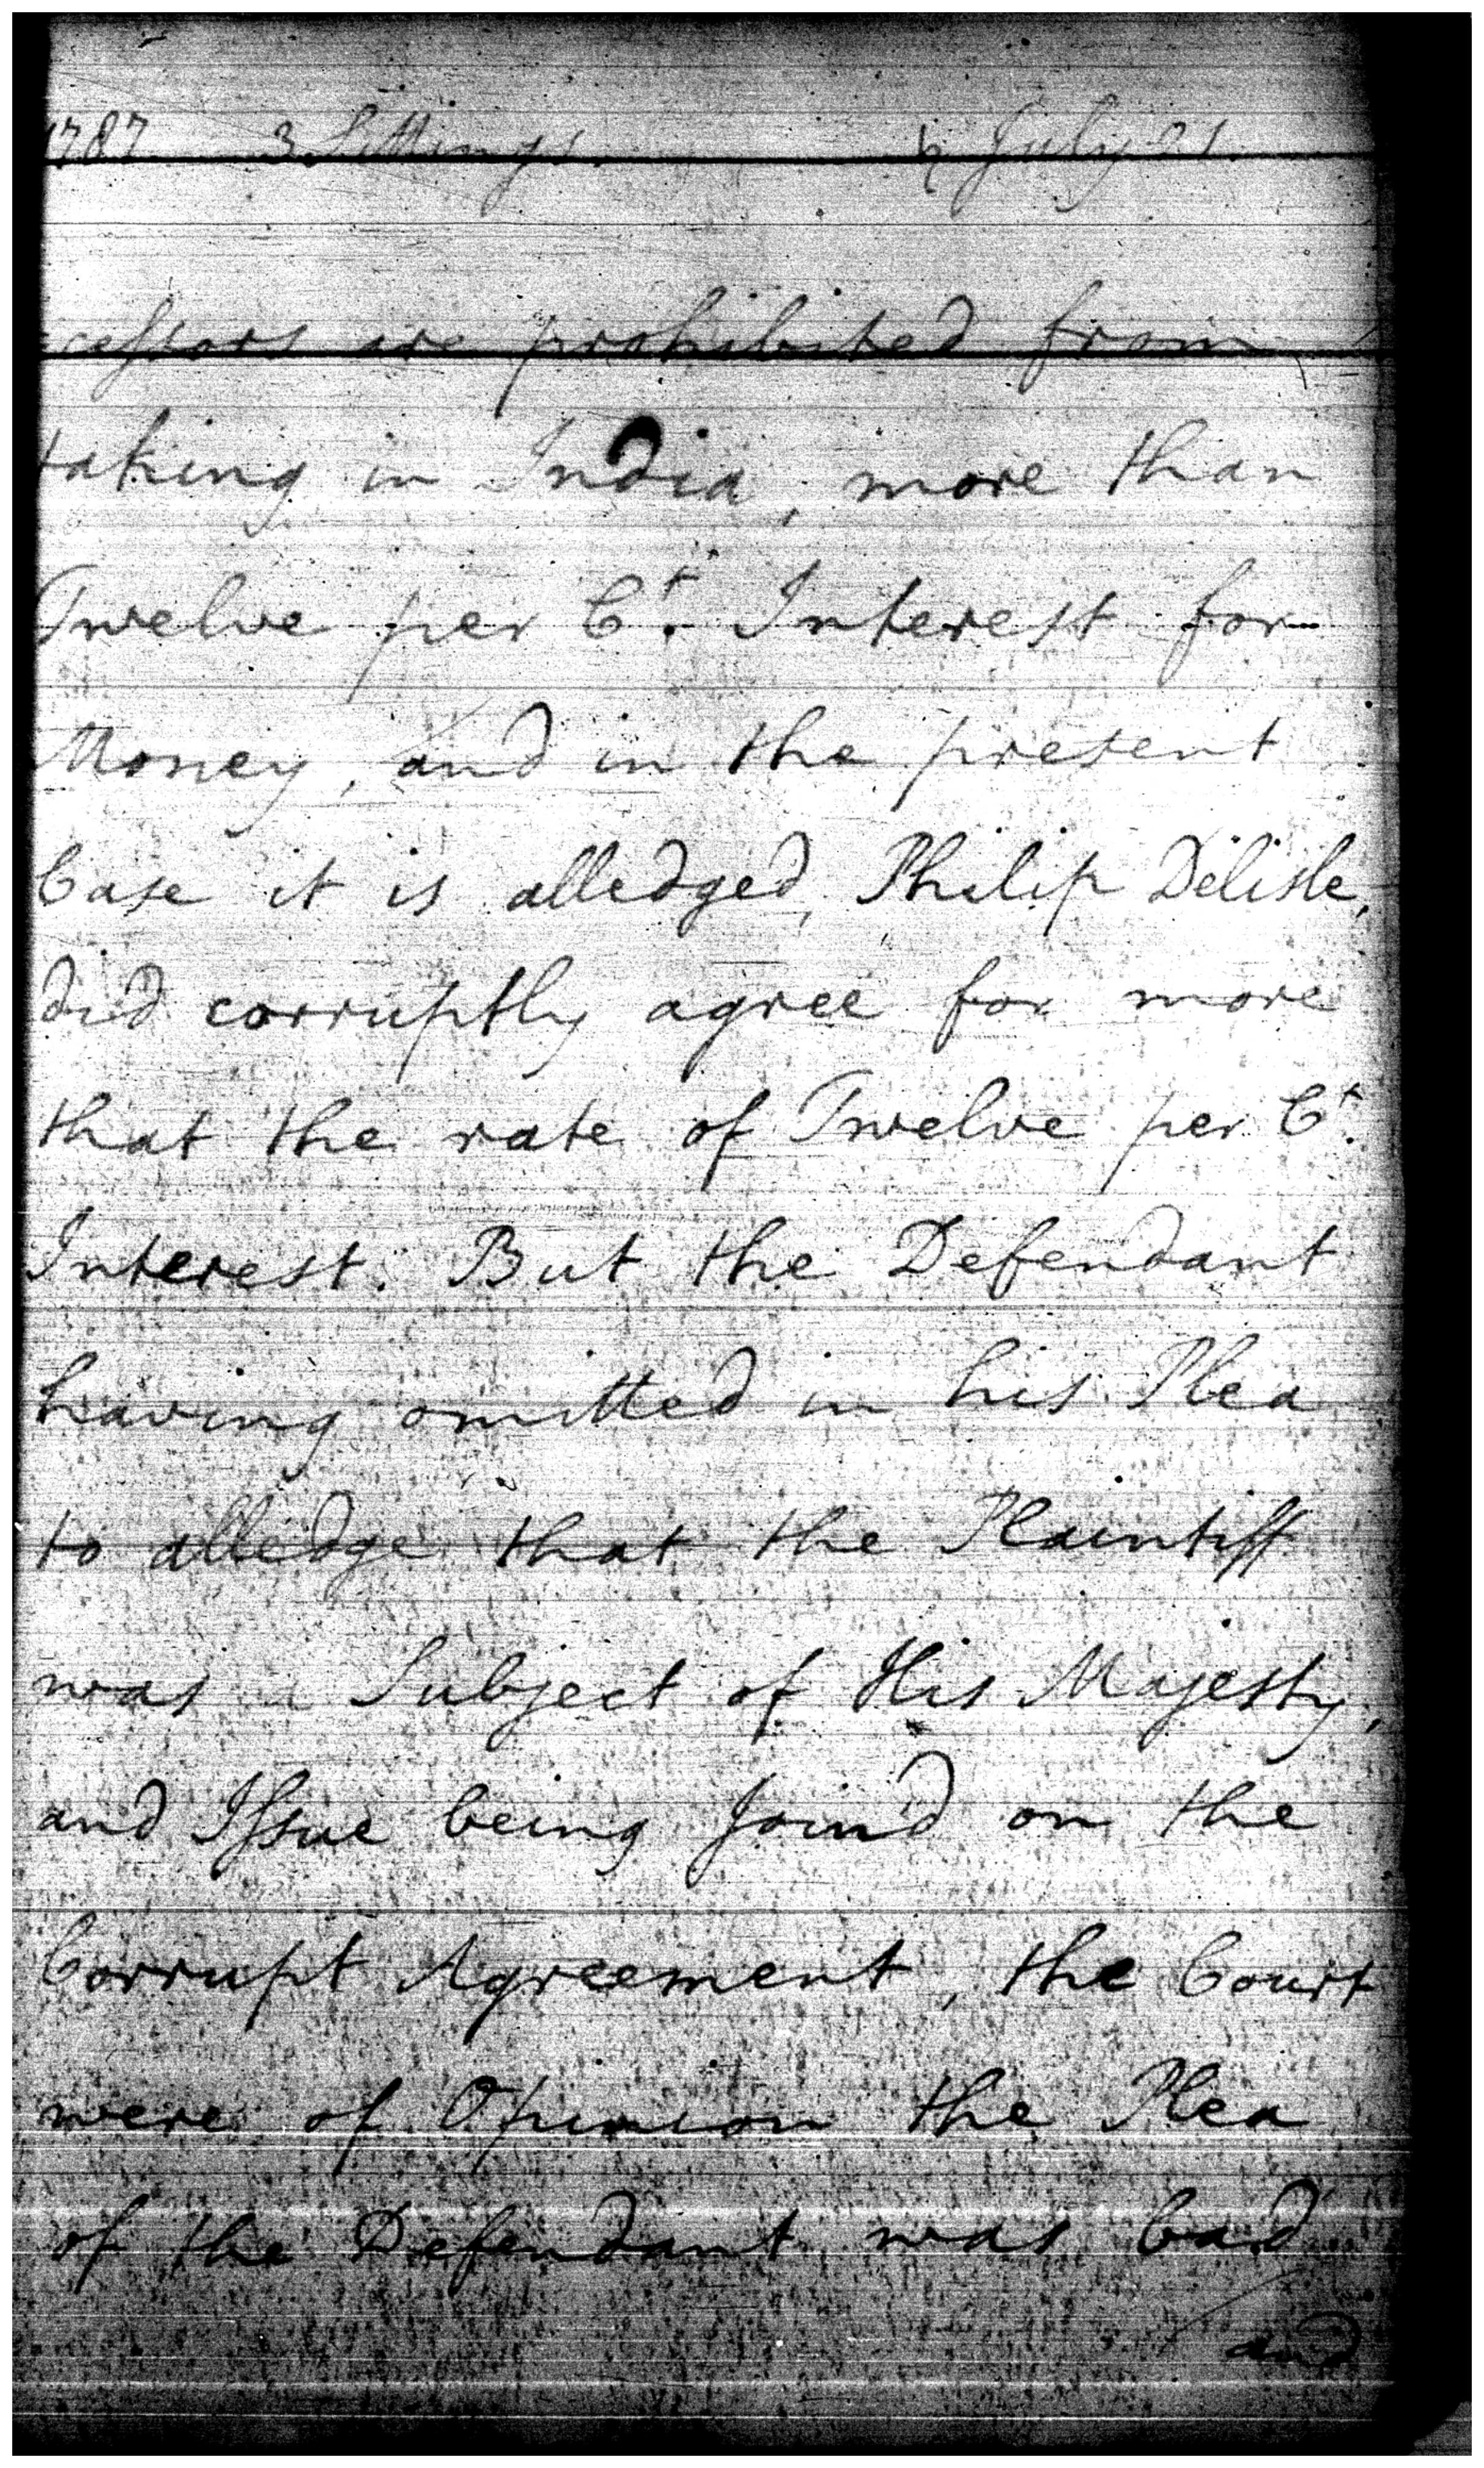 1787 3 Sittings July 21
cessors are prohibited from
taking in India, more than
Twelve per Ct. Interest for
Money, and in the present
Case it is alledged, Philip Delisle,
did corruptly agree for more
that the rate of Twelve per Ct.
Interest. But the Defendant
having omitted in his Plea
to alledge that the Plaintiff
was a Subject of His Majesty,
and Issue being Join'd on the
Corrupt Agreement, the Court
were of Opinion the Plea
of the Defendant was bad
and